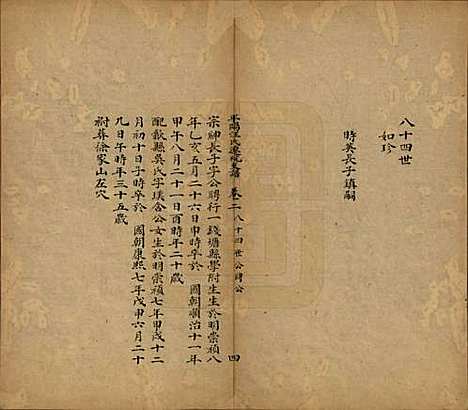 八十四世
如珍
時英長子鎮嗣
平陽汪氏遷杭支譜 卷二 八十四世公聘公 四
宗紳長子字公聘行一錢塘縣學附生生於明崇禎八
年乙亥五月二十六日申時卒於 國朝順治十一年
甲午八月二十一日酉時年二十歲
配歙縣吳氏字璞含公女生於明崇禎七年甲戌十二
月初十日子時卒於 國朝康熙七年戊申六月二十
九日午時年三十五歲
祔葬徐家山左穴